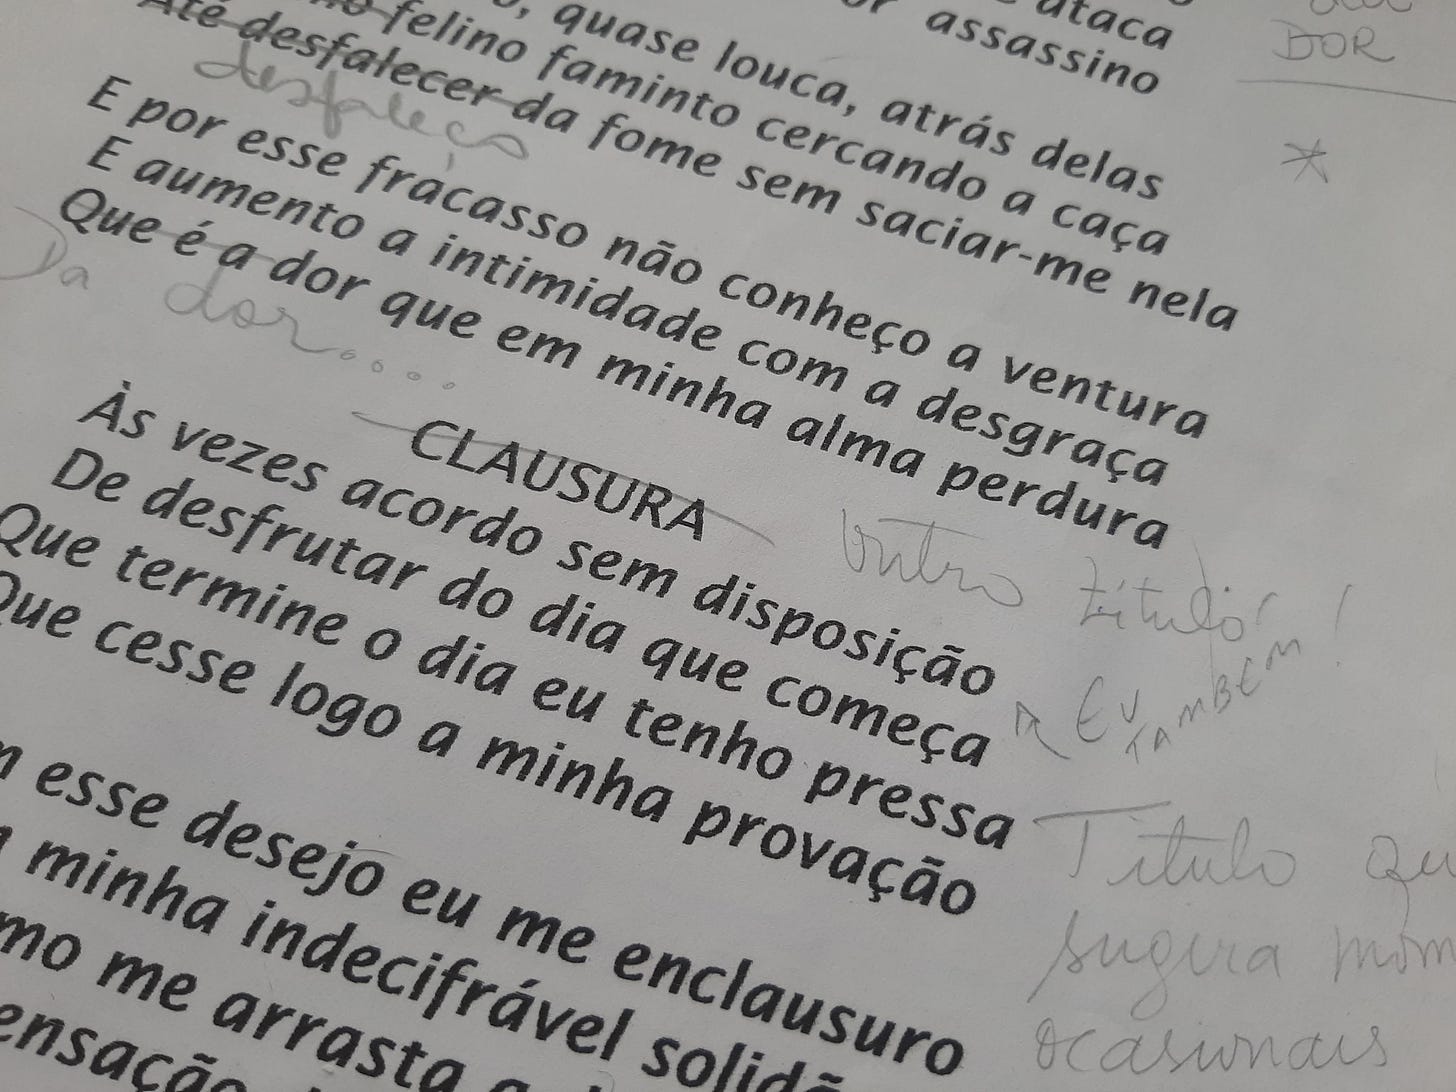 ataca
assassino
DOR
quase louca, atrás delas
felino faminto cercando a caça
Até desfalecer da fome sem saciar-me nela
desfaleço
E por esse fracasso não conheço a ventura
E aumento a intimidade com a desgraça
Que é a dor que em minha alma perdura
Da dor....
CLAUSURA
outro título!
Eu também!
Às vezes acordo sem disposição
De desfrutar do dia que começa
Que termine o dia eu tenho pressa
Que cesse logo a minha provação
Título
sugira
ocasionais
esse desejo eu me enclausuro
minha indecifrável
me arrasta